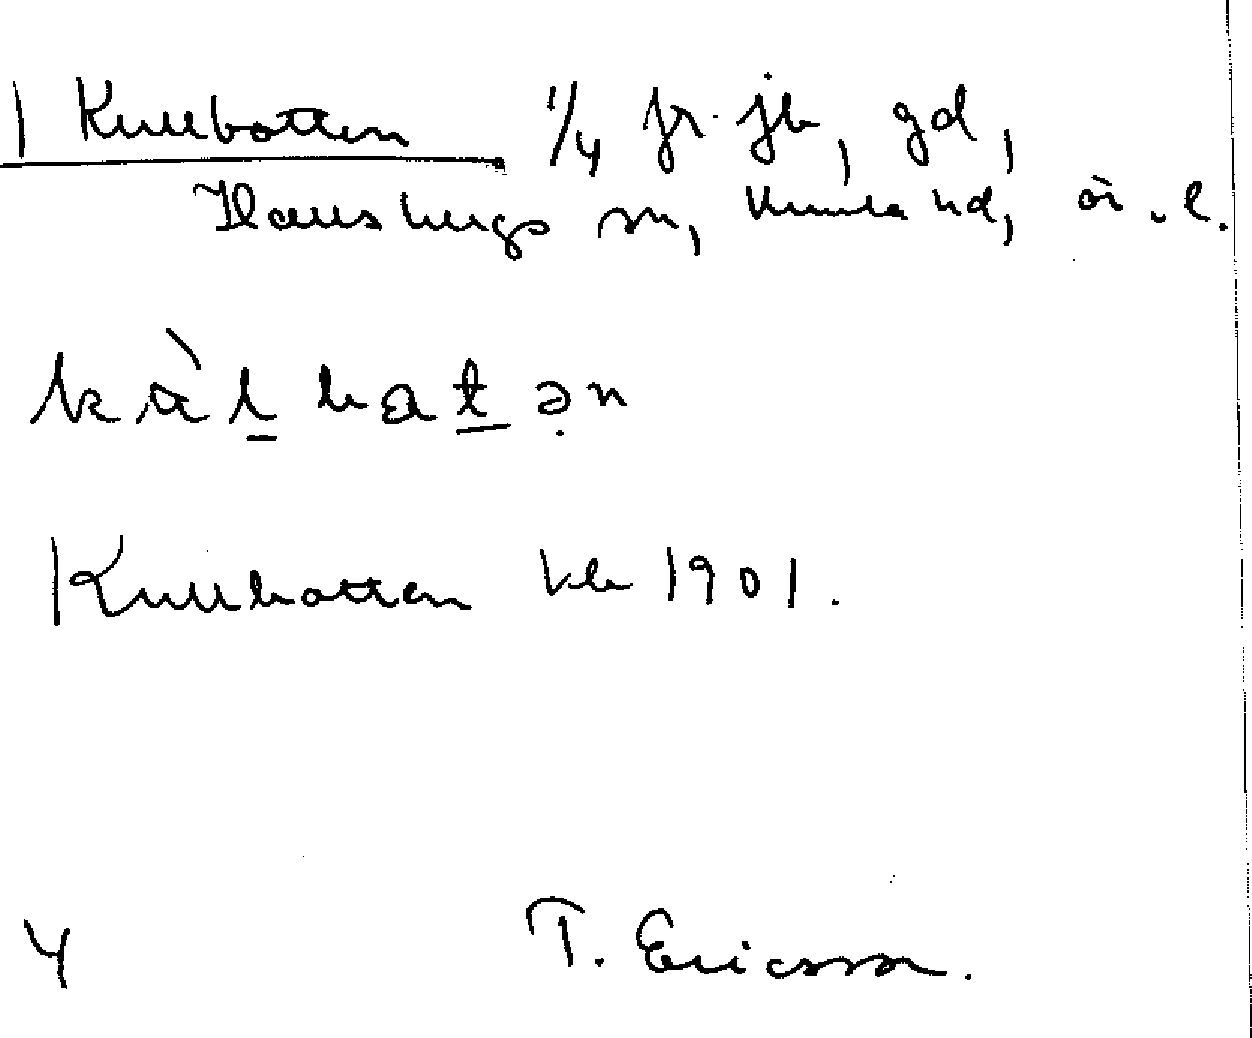 1 Kullbotten 1/4 fr. jb, gd,
Hallsbergs sn, Kumla hd, ör. l.
kàl bat ən
Kullbotten kb 1901.
4 T. Ericsson.